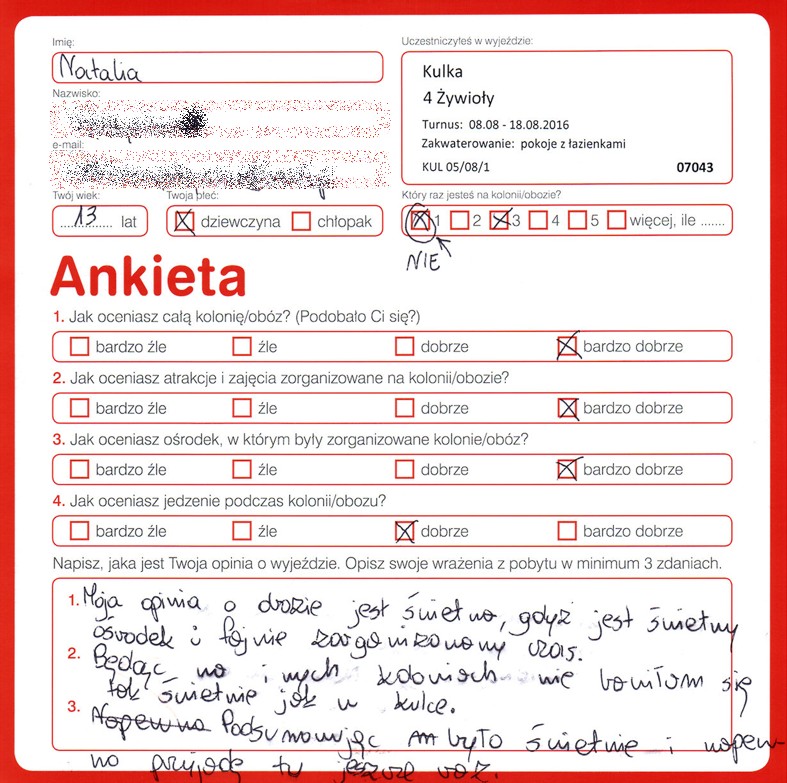 Imię:
Natalia
Uczestniczyłeś w wyjeździe:
Kulka
4 Żywioły
Turnus: 08.08 - 18.08.2016
Zakwaterowanie: pokoje z łazienkami
KUL 05/08/1 07043
Nazwisko:
e-mail:
Twój wiek:
13 lat
Twoja płeć:
dziewczyna chłopak
Który raz jesteś na kolonii/obozie?
1 2 3 4 5 więcej, ile .......
NIE
Ankieta
1. Jak oceniasz całą kolonię/obóz? (Podobało Ci się?)
bardzo źle źle dobrze bardzo dobrze
2. Jak oceniasz atrakcje i zajęcia zorganizowane na kolonii/obozie?
bardzo źle źle dobrze bardzo dobrze
3. Jak oceniasz ośrodek, w którym były zorganizowane kolonie/obóz?
bardzo źle źle dobrze bardzo dobrze
4. Jak oceniasz jedzenie podczas kolonii/obozu?
bardzo źle źle dobrze bardzo dobrze
Napisz, jaka jest Twoja opinia o wyjeździe. Opisz swoje wrażenia z pobytu w minimum 3 zdaniach.
1. Moja opinia o obozie jest świetna, gdyż jest świetny
ośrodek i fajnie zorganizowany czas.
2. Będąc na innych koloniach nie bawiłam się
tak świetnie jak w kulce.
3. Napewno Podsumowując było świetnie i napew-
no przyjadę tu jeszcze raz.